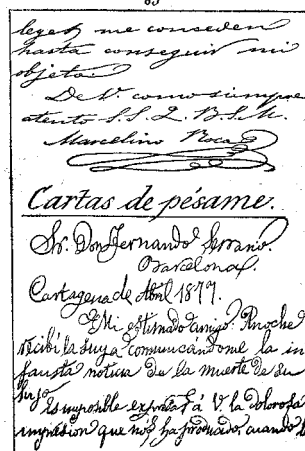 leyes me conceden
hasta conseguir mi
objeto.
De V. como siempre
atento S. S. Q. B. S. M.
Marcelino Roca
Cartas de pésame.
Sr. Don Fernando Serrano.
Barcelona.
Cartagena de Abril 1877.
Mi estimado amigo: Anoche
recibí la suya comunicándome la in
fausta noticia de la muerte de su
hijo.
Es imposible expresar á V. la dolorosa
impresion que nos ha producido, cuando